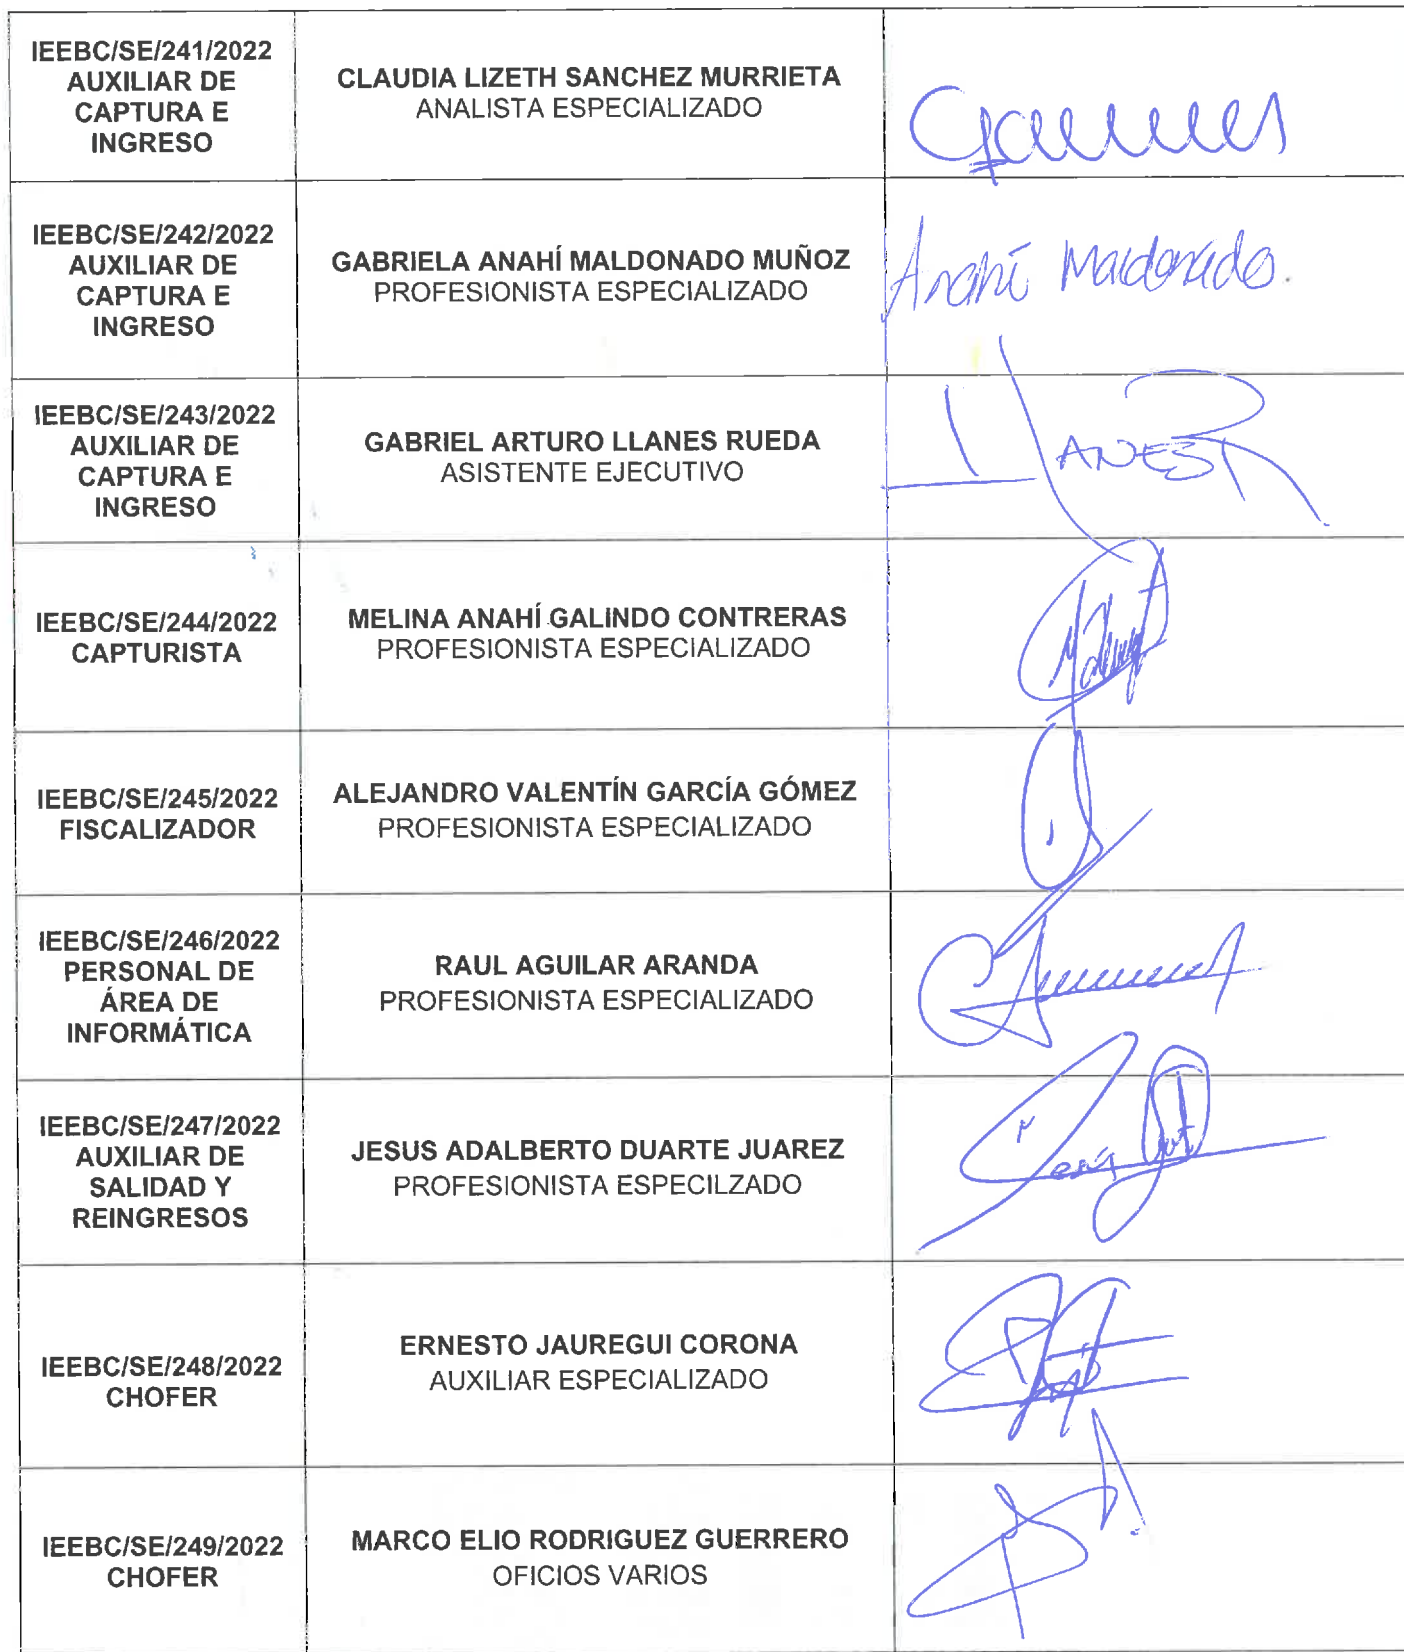 IEEBC/SE/241/2022
AUXILIAR DE
CAPTURA E
INGRESO
CLAUDIA LIZETH SANCHEZ MURRIETA
ANALISTA ESPECIALIZADO
IEEBC/SE/242/2022
AUXILIAR DE
CAPTURA E
INGRESO
GABRIELA ANAHÍ MALDONADO MUÑOZ
PROFESIONISTA ESPECIALIZADO
Anahí Maldonado.
IEEBC/SE/243/2022
AUXILIAR DE
CAPTURA E
INGRESO
GABRIEL ARTURO LLANES RUEDA
ASISTENTE EJECUTIVO
LLANES R
IEEBC/SE/244/2022
CAPTURISTA
MELINA ANAHÍ GALINDO CONTRERAS
PROFESIONISTA ESPECIALIZADO
IEEBC/SE/245/2022
FISCALIZADOR
ALEJANDRO VALENTÍN GARCÍA GÓMEZ
PROFESIONISTA ESPECIALIZADO
IEEBC/SE/246/2022
PERSONAL DE
ÁREA DE
INFORMÁTICA
RAUL AGUILAR ARANDA
PROFESIONISTA ESPECIALIZADO
IEEBC/SE/247/2022
AUXILIAR DE
SALIDAD Y
REINGRESOS
JESUS ADALBERTO DUARTE JUAREZ
PROFESIONISTA ESPECILZADO
IEEBC/SE/248/2022
CHOFER
ERNESTO JAUREGUI CORONA
AUXILIAR ESPECIALIZADO
IEEBC/SE/249/2022
CHOFER
MARCO ELIO RODRIGUEZ GUERRERO
OFICIOS VARIOS